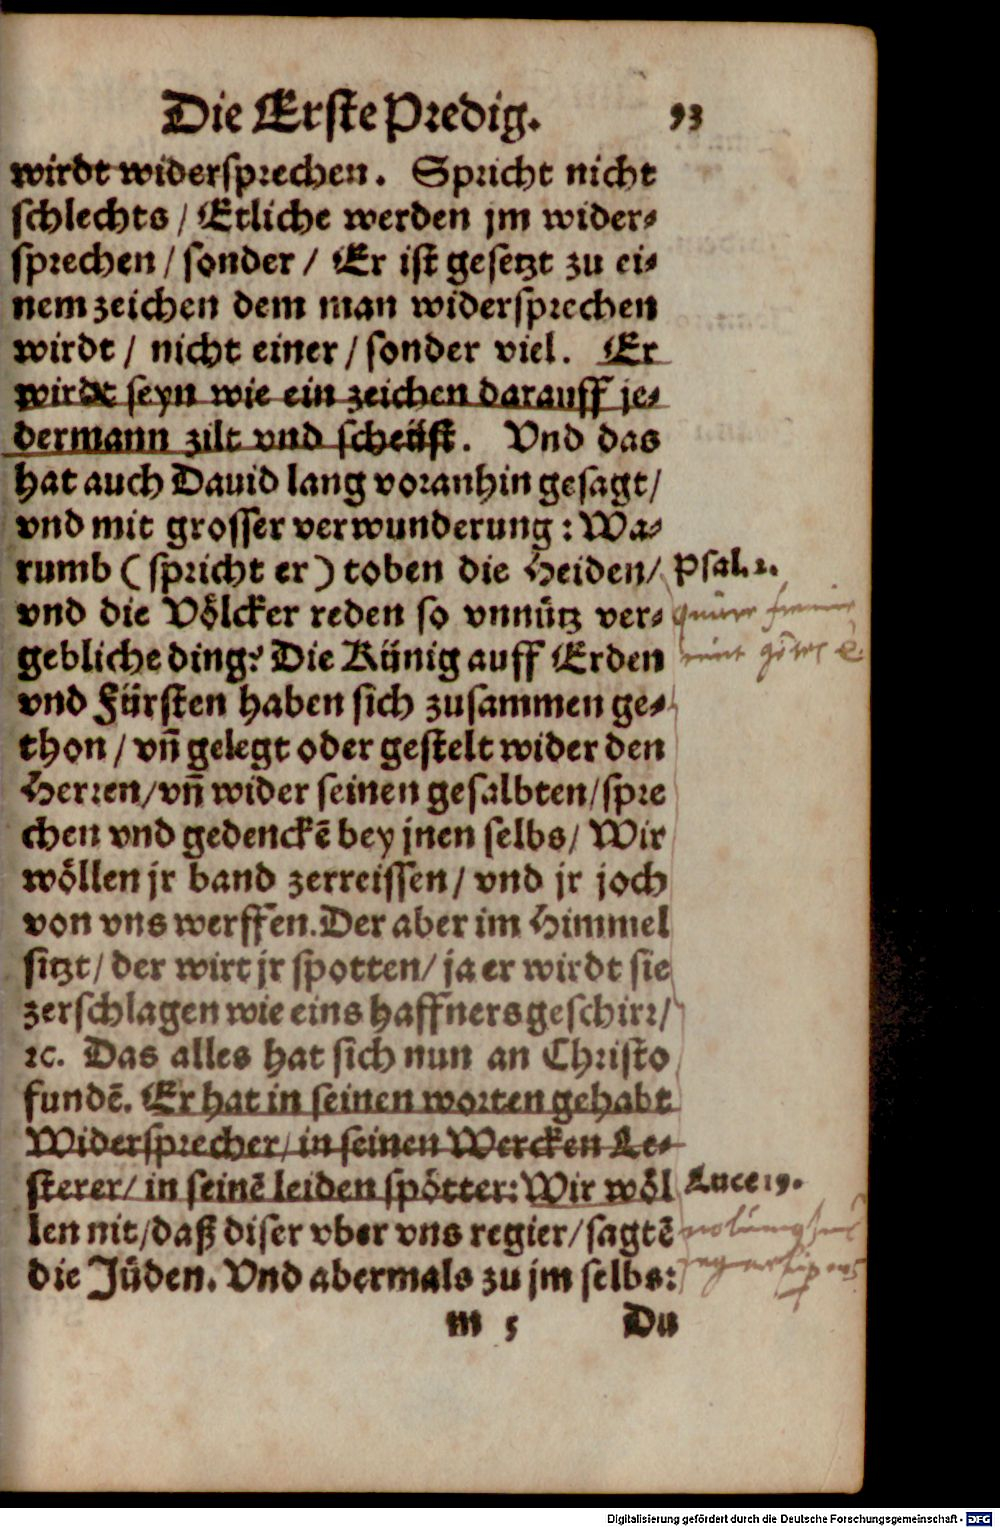 Die Erste Predig. 93
wirdt widersprechen. Spricht nicht
schlechts / Etliche werden jm wider⸗
sprechen / sonder / Er ist gesetzt zu ei⸗
nem zeichen dem man widersprechen
wirdt / nicht einer / sonder viel. Er
wirdt seyn wie ein zeichen darauff je⸗
dermann zilt vnd scheüst. Vnd das
hat auch Dauid lang voranhin gesagt /
vnd mit grosser verwunderung : Wa⸗
rumb ( spricht er ) toben die Heiden /
Psal. 2.
vnd die Völcker reden so vnnütz ver⸗
gebliche ding? Die Künig auff Erden
vnd Fürsten haben sich zusammen ge⸗
thon / vñ gelegt oder gestelt wider den
Herren / vñ wider seinen gesalbten / spre
chen vnd gedenckē bey jnen selbs / Wir
wöllen jr band zerreissen / vnd jr joch
von vns werffen. Der aber im Himmel
sitzt / der wirt jr spotten / ja er wirdt sie
zerschlagen wie eins haffners geschirr /
ꝛc. Das alles hat sich nun an Christo
fundē. Er hat in seinen worten gehabt
Widersprecher / in seinen Wercken Le⸗
sterer / in seinē leiden spötter: Wir wöl
Luce 19.
len nit / daß diser vber vns regier / sagtē
die Jüden. Vnd abermals zu jm selbs:
m 5 Du
Digitalisierung gefördert durch die Deutsche Forschungsgemeinschaft - DFG